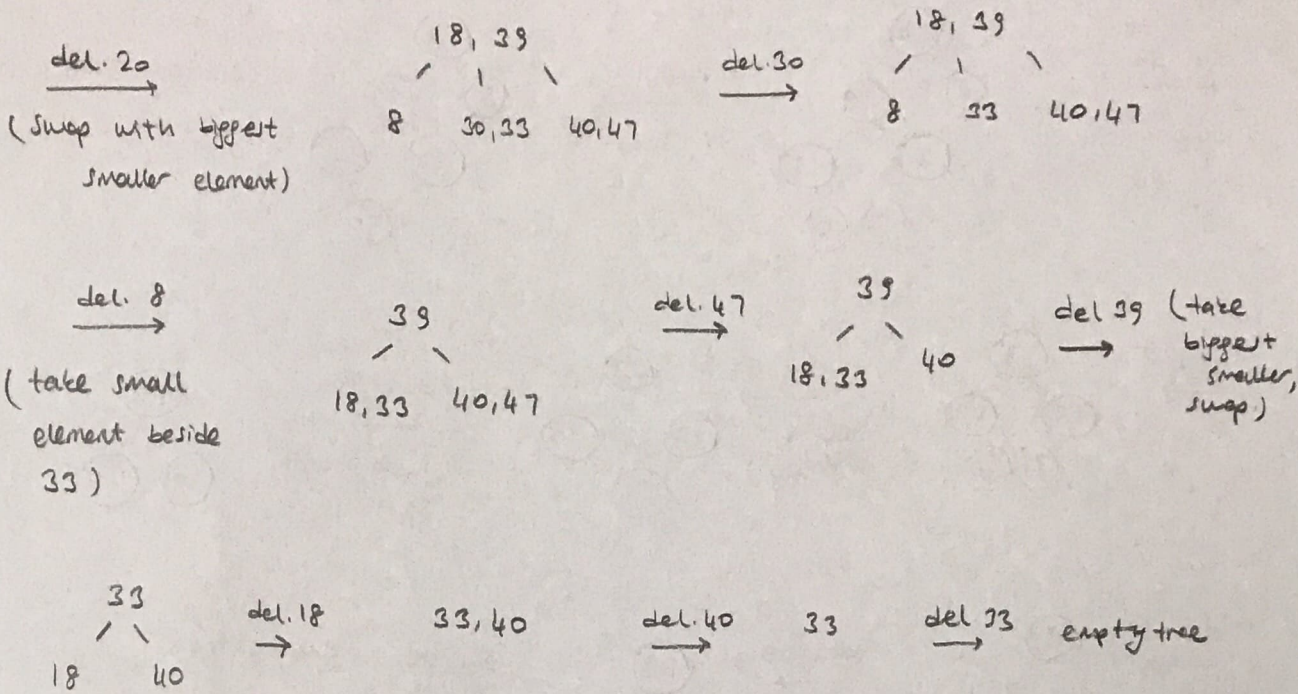 del. 20
(swap with biggest
smaller element)
18, 39
8 30,33 40,47
del.30
18, 39
8 33 40,47
del. 8
(take small
element beside
33)
39
18,33 40,47
del.47
39
18,33 40
del 39 (take
biggest
smaller,
swap.)
33
18 40
del.18
33,40
del.40
33
del 33
empty tree